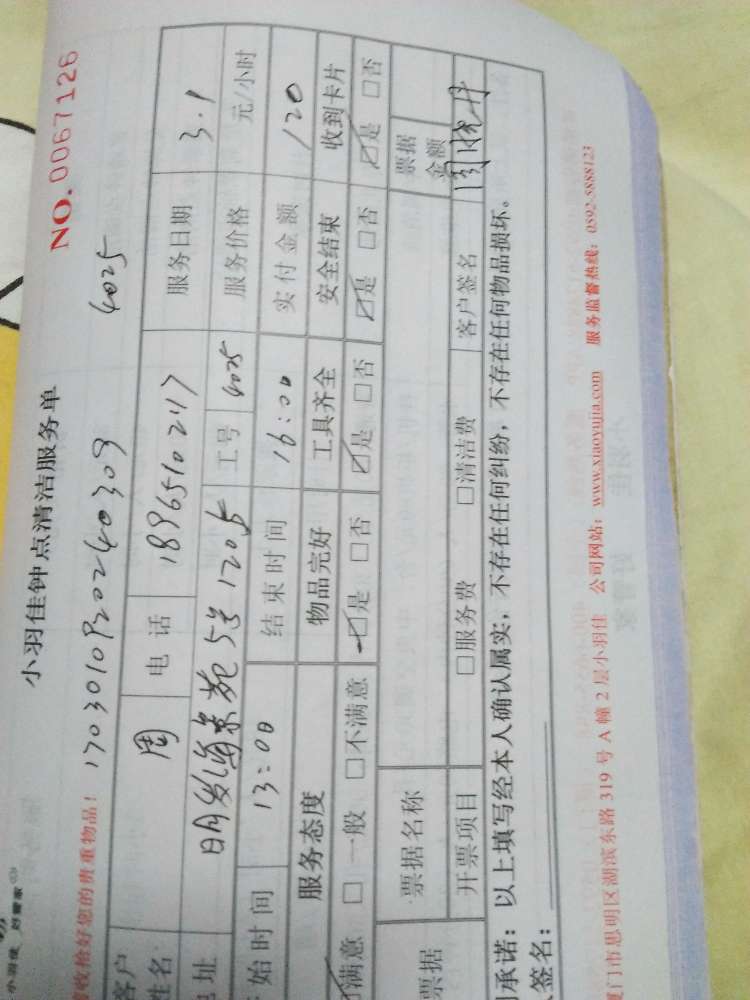 小羽佳 好管家
小羽佳钟点清洁服务单
NO. 0067126
收拾好您的贵重物品! 1703010P202440309 4025
客户姓名 周 电话 1896510247 服务日期 3.1
址 明发海景苑5号1205 工号 4025 服务价格 元/小时
始时间 13:00 结束时间 16:00 实付金额 120
服务态度 物品完好 工具齐全 安全结束 收到卡片
满意 □ 一般 □不满意 ☑是 □否 ☑是 □否 ☑是 □否 ☑是 □否
票据 票据名称 票据金额
开票项目 □服务费 □清洁费 客户签名 周晓丹
承诺: 以上填写经本人确认属实, 不存在任何纠纷, 不存在任何物品损坏。
签名:
厦门市思明区湖滨东路 319 号 A 幢 2 层小羽佳 公司网站: www.xiaoyujia.com 服务监督热线: 0592-5888123